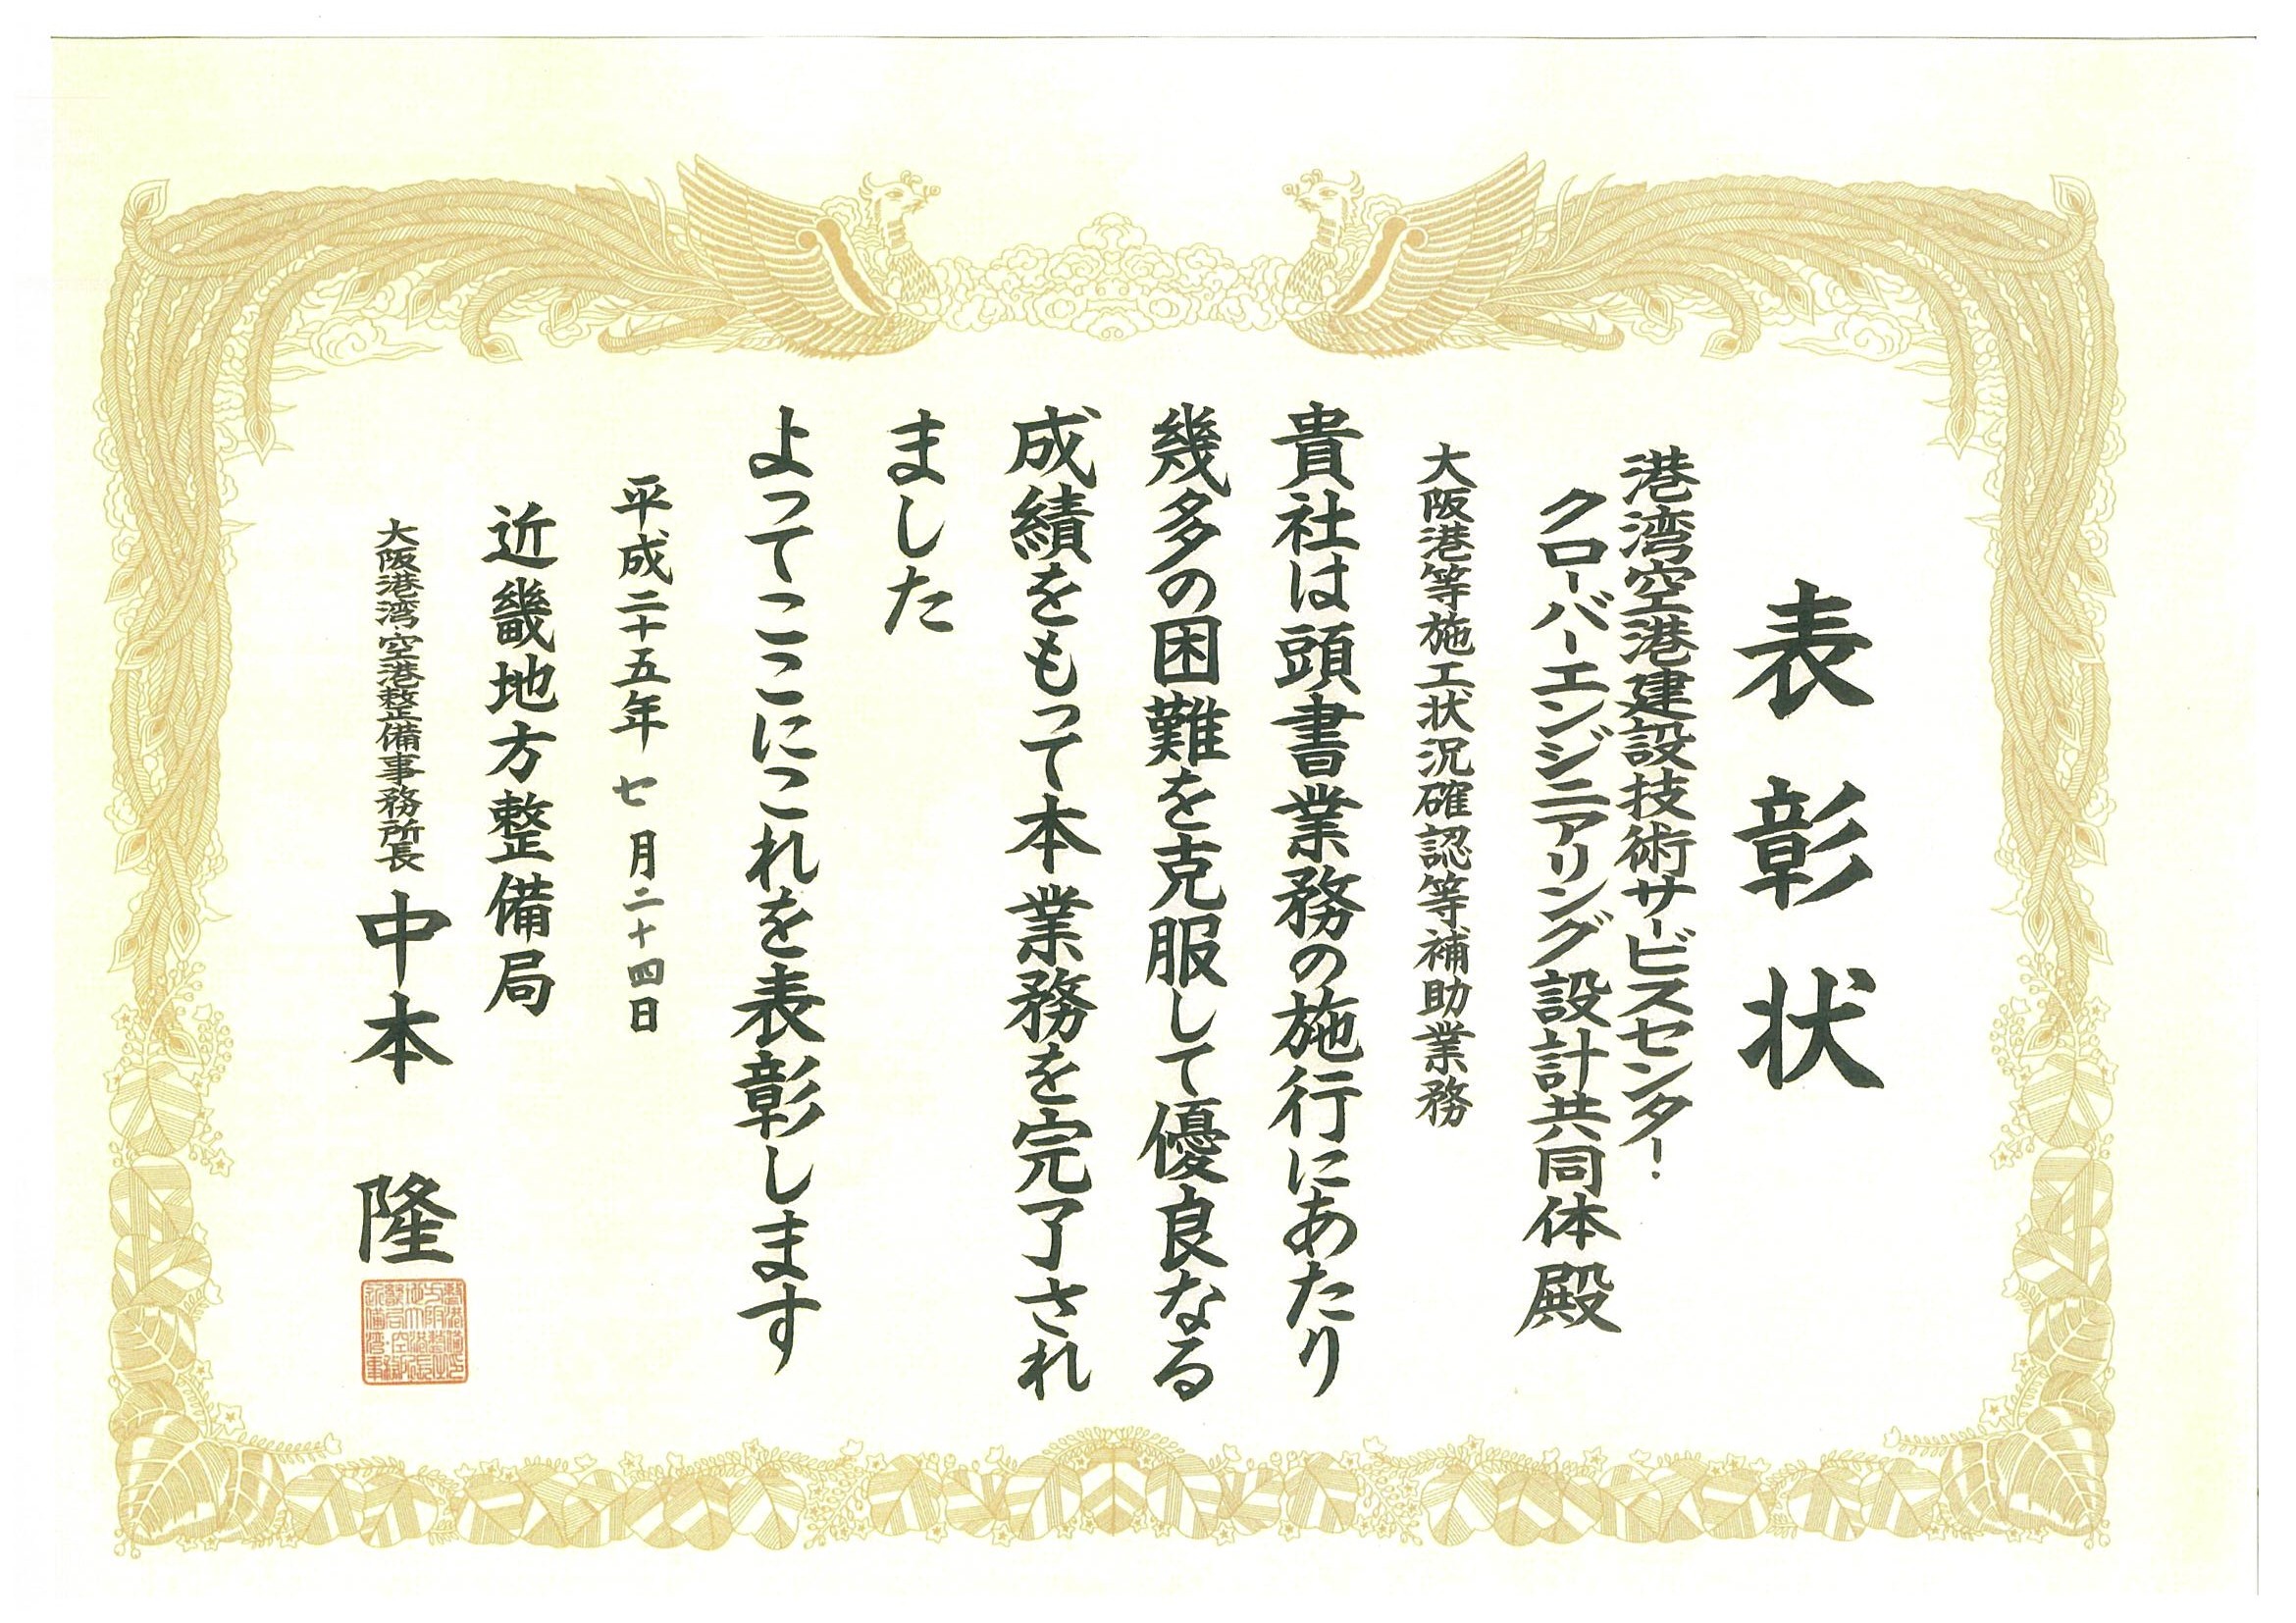 表彰状
港湾空港建設技術サービスセンター・
クローバーエンジニアリング設計共同体殿
大阪港等施工状況確認等補助業務
貴社は頭書業務の施行にあたり
幾多の困難を克服して優良なる
成績をもって本業務を完了され
ました
よってここにこれを表彰します
平成二十五年七月二十四日
近畿地方整備局
大阪港湾・空港整備事務所長 中本 隆